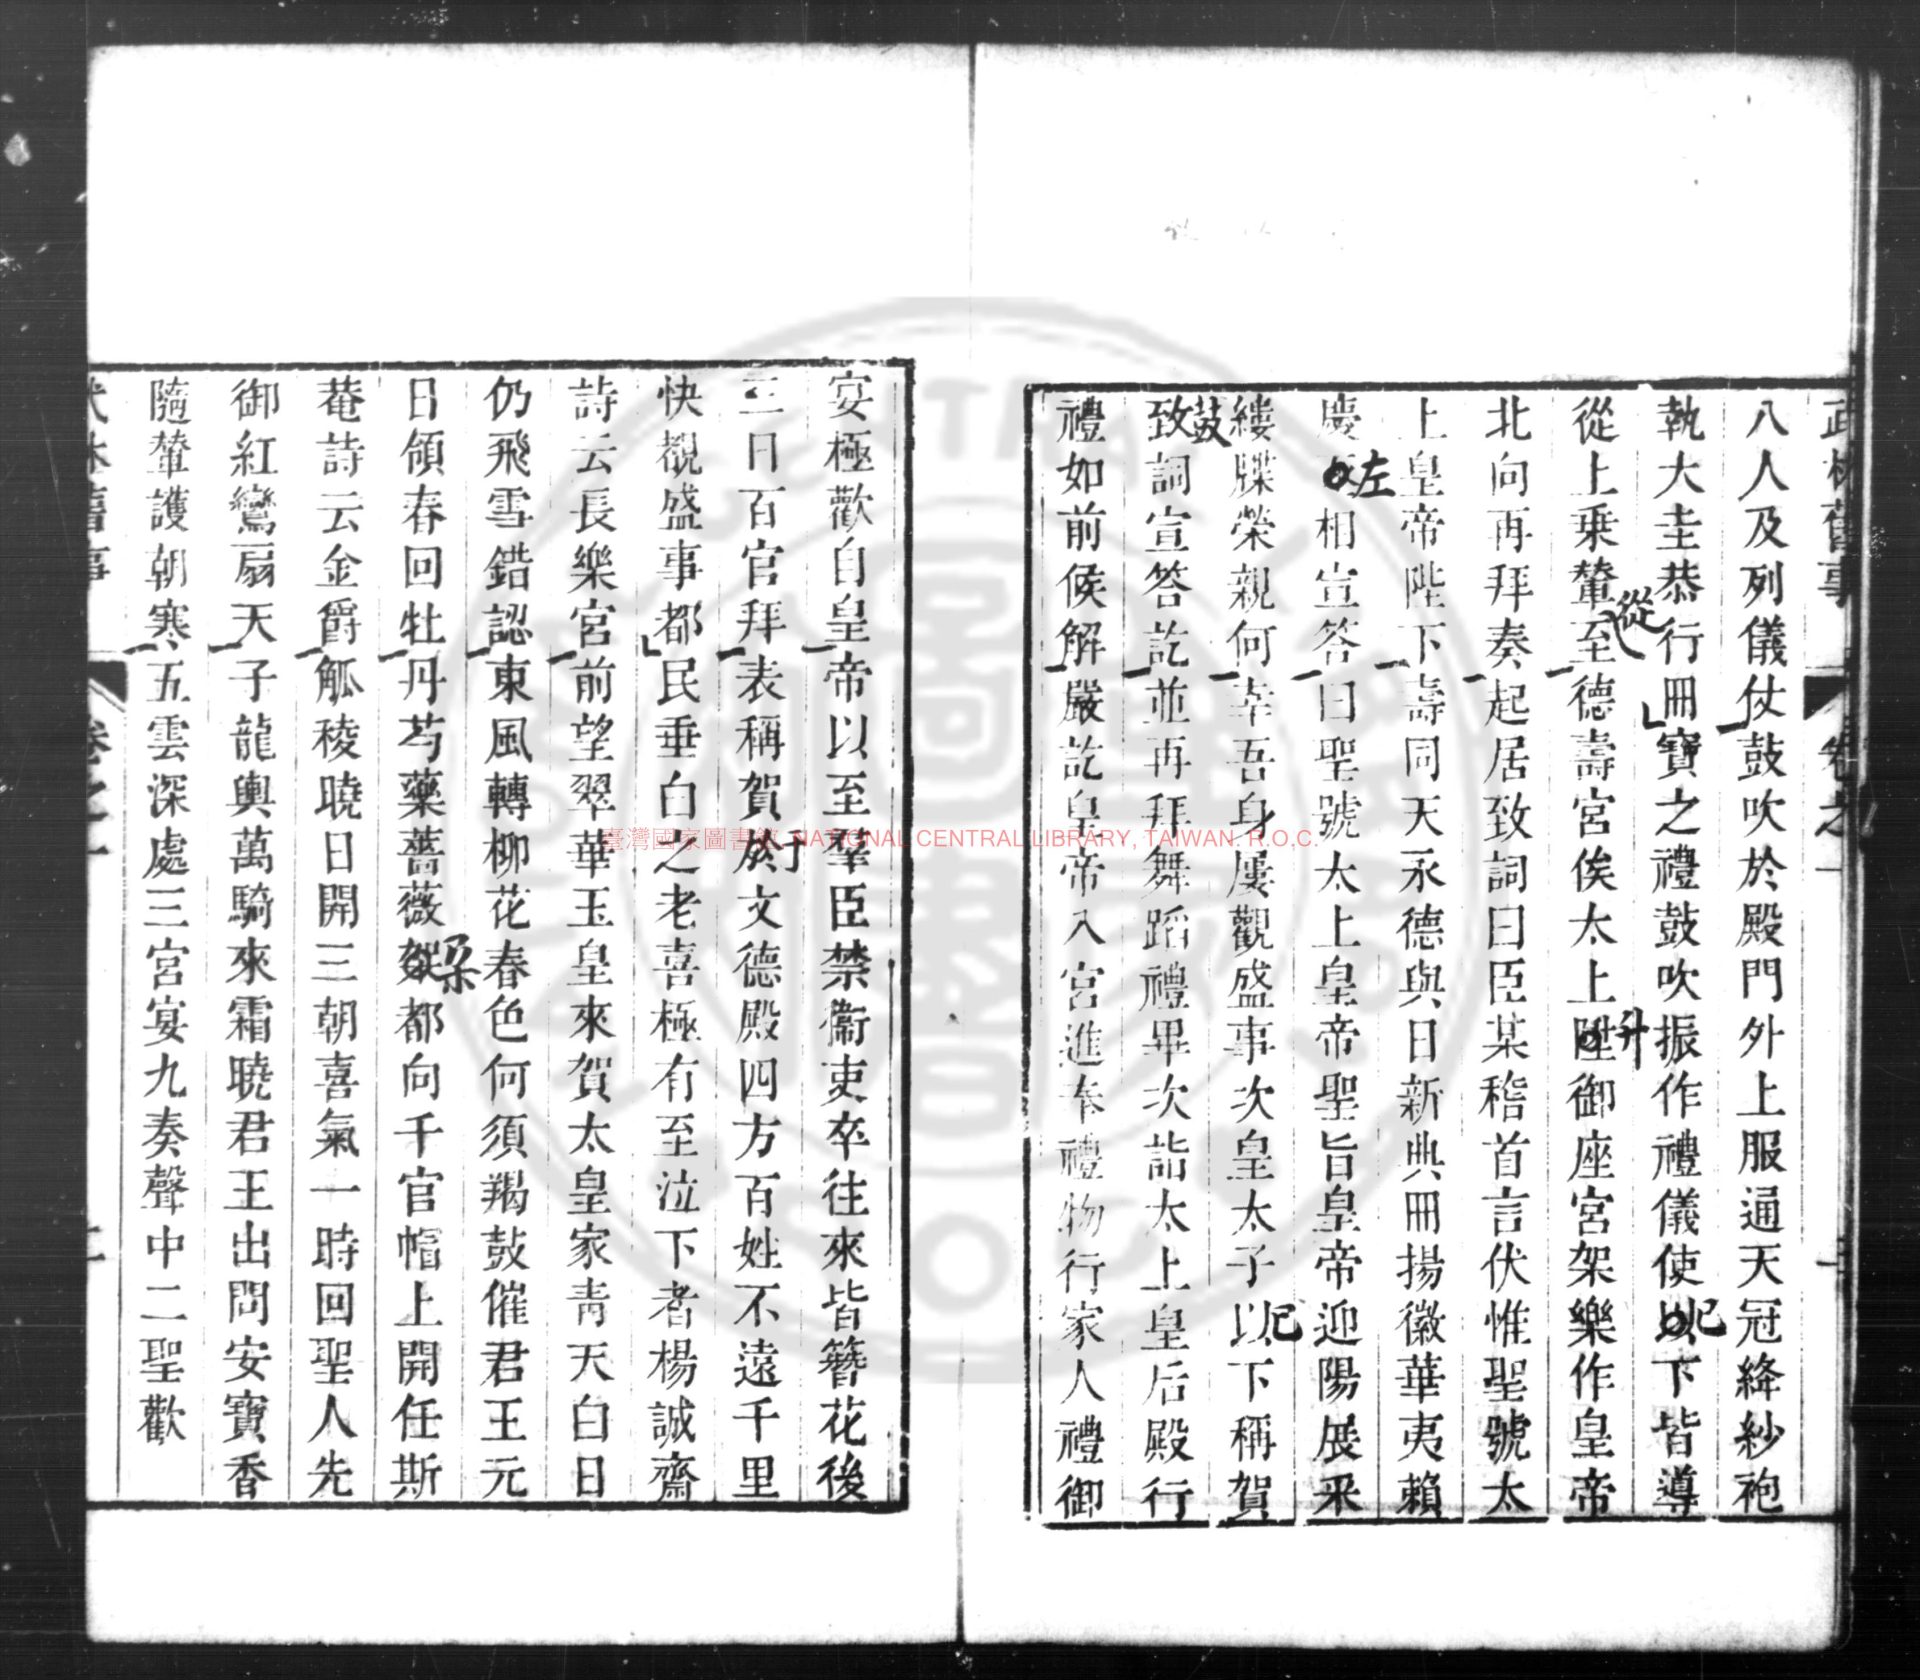 武林舊事 卷之一
八人及列儀仗鼓吹於殿門外上服通天冠絳紗袍
執大圭恭行冊寶之禮鼓吹振作禮儀使以下皆導
從上乗輦至德壽宮俟太上陞御座宮架樂作皇帝
北向再拜奏起居致詞曰臣某稽首言伏惟聖號太
上皇帝陛下壽同天永德與日新典冊揚徽華夷賴
慶 相宣答曰聖號太上皇帝聖旨皇帝迎陽展采
縷牒榮親何幸吾身屢觀盛事次皇太子以下稱賀
致詞宣答訖並再拜舞蹈禮畢次詣太上皇后殿行
禮如前候解嚴訖皇帝入宮進奉禮物行家人禮御
從
升
左
鼓
宴極歡自皇帝以至羣臣禁衞吏卒往來皆簪花後
三日百官拜表稱賀於文德殿四方百姓不遠千里
快覩盛事都民垂白之老喜極有至泣下者楊誠齋
詩云長樂宮前望翠華玉皇來賀太皇家青天白日
仍飛雪錯認東風轉柳花春色何須羯鼓催君王元
日領春回牡丹芍藥薔薇 都向千官帽上開任斯
菴詩云金爵觚稜曉日開三朝喜氣一時回聖人先
御紅鸞扇天子龍輿萬騎來霜曉君王出問安寶香
隨輦護朝寒五雲深處三宮宴九奏聲中二聖歡
朵
于
武林舊事 卷之一
臺灣國家圖書館 NATIONAL CENTRAL LIBRARY, TAIWAN. R.O.C.